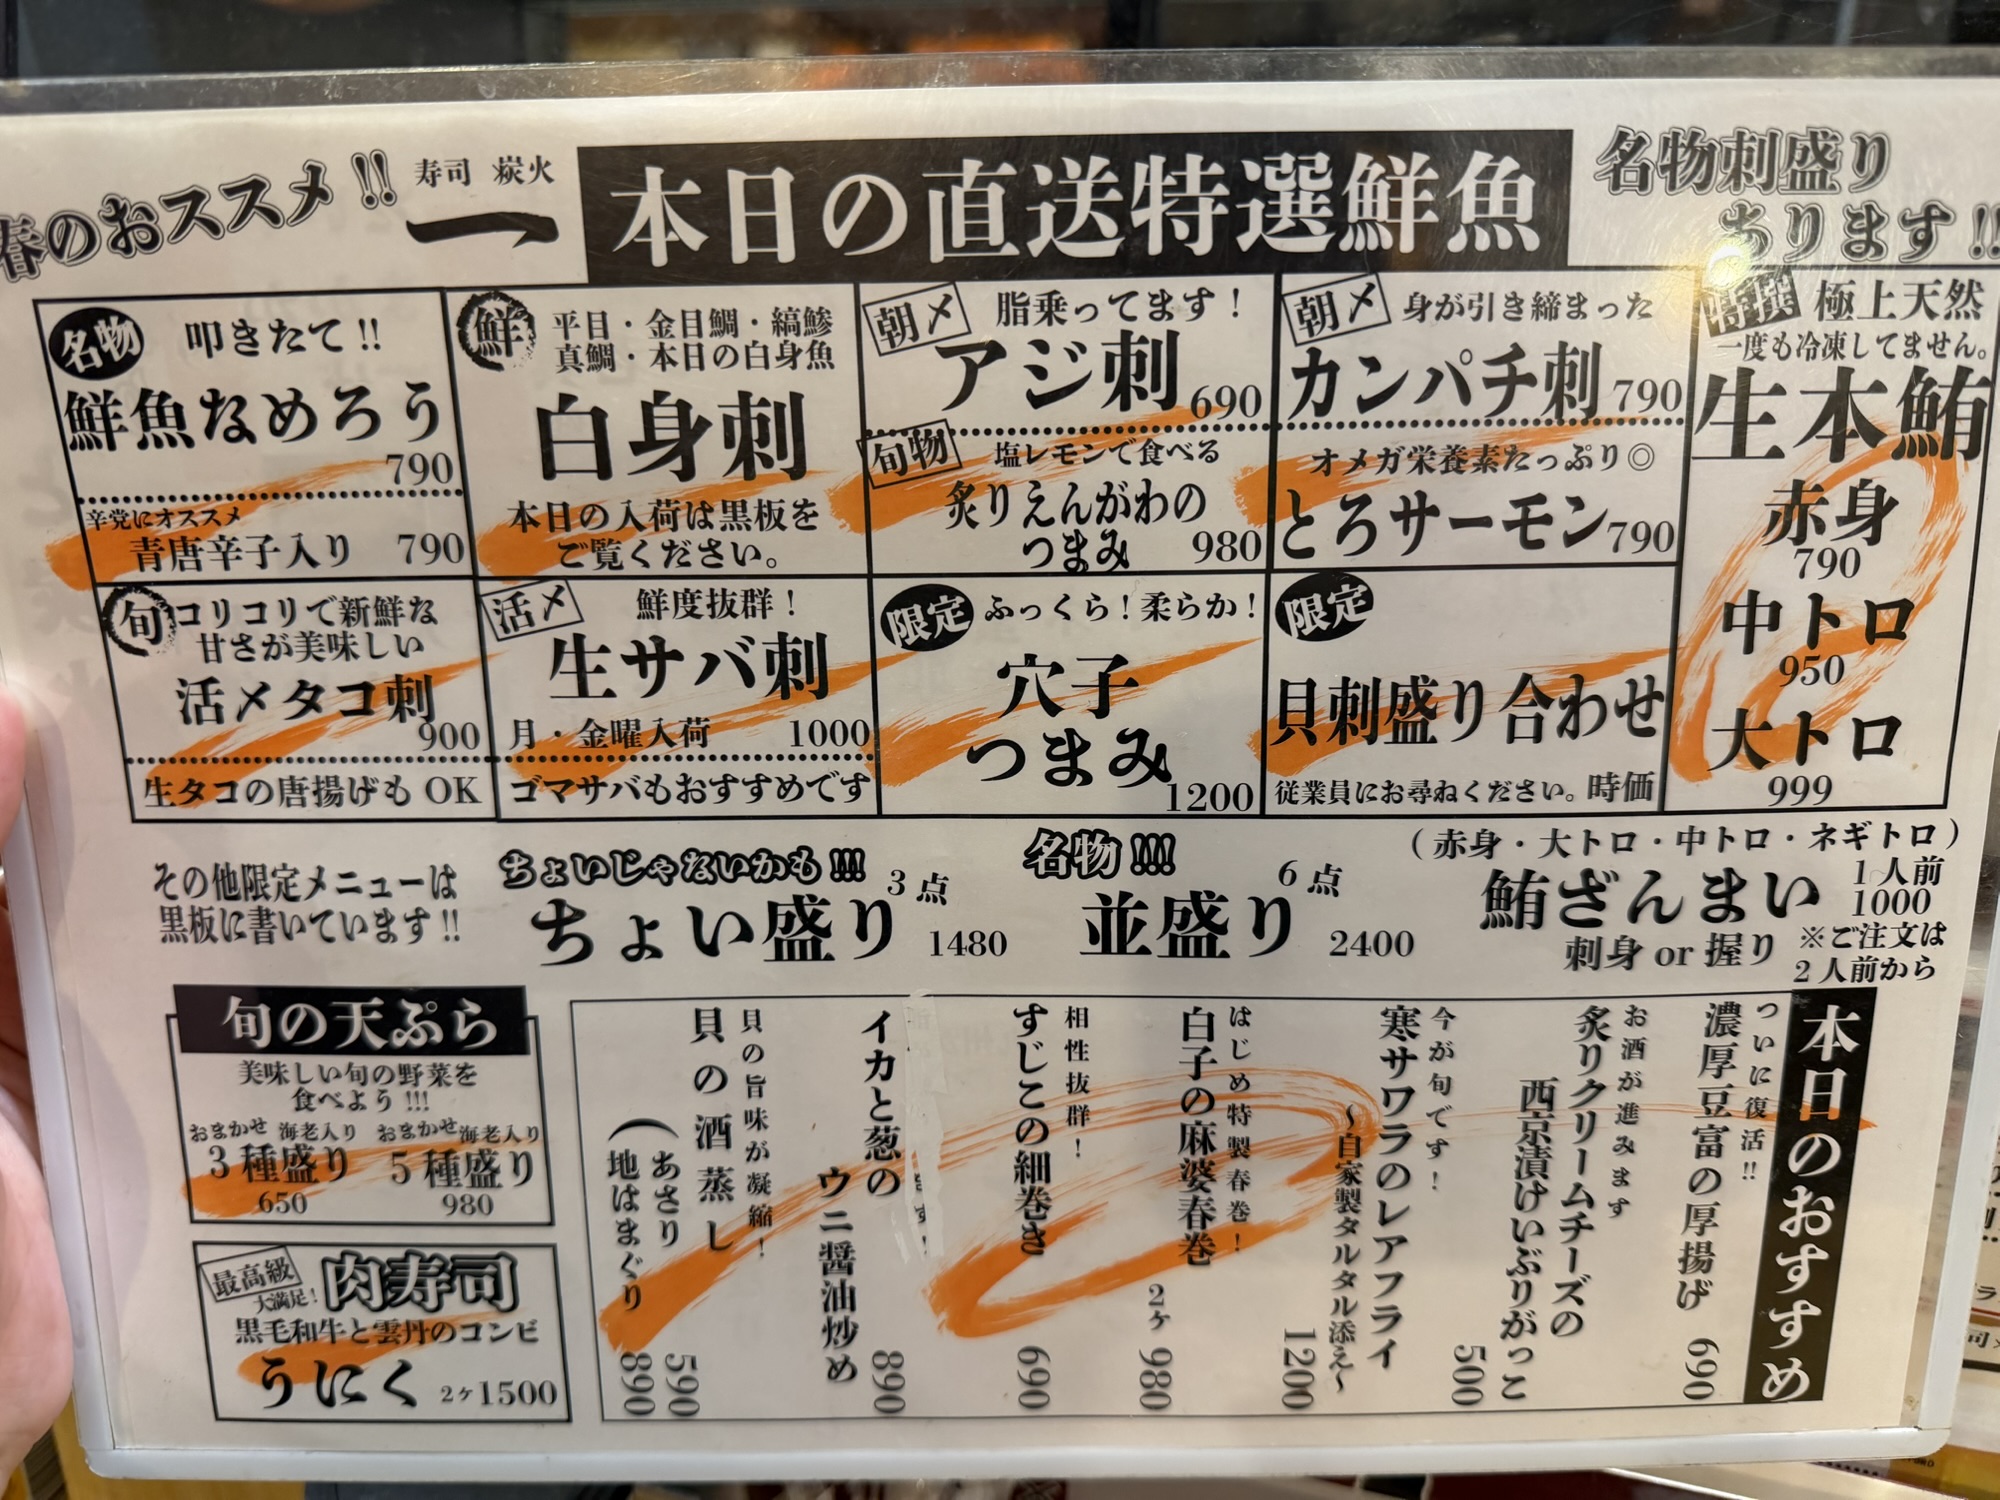 春のおススメ!!
寿司 炭火
一
本日の直送特選鮮魚
名物刺盛り
あります!!
名物
叩きたて!!
鮮魚なめろう
790
辛党にオススメ
青唐辛子入り 790
鮮
平目・金目鯛・縞鯵
真鯛・本日の白身魚
白身刺
本日の入荷は黒板を
ご覧ください。
朝〆
脂乗ってます!
アジ刺 690
旬物
塩レモンで食べる
炙りえんがわの
つまみ 980
朝〆
身が引き締まった
カンパチ刺 790
オメガ栄養素たっぷり◎
とろサーモン 790
特撰
極上天然
一度も冷凍してません。
生本鮪
赤身
790
中トロ
950
大トロ
999
旬
コリコリで新鮮な
甘さが美味しい
活〆タコ刺
900
生タコの唐揚げも OK
活〆
鮮度抜群!
生サバ刺
月・金曜入荷 1000
ゴマサバもおすすめです
限定
ふっくら!柔らか!
穴子
つまみ
1200
限定
貝刺盛り合わせ
従業員にお尋ねください。時価
その他限定メニューは
黒板に書いています!!
ちょいじゃないかも!!!
ちょい盛り 3点 1480
名物!!!
並盛り 6点 2400
(赤身・大トロ・中トロ・ネギトロ)
鮪ざんまい 1人前
1000
刺身 or 握り
※ご注文は
2人前から
旬の天ぷら
美味しい旬の野菜を
食べよう!!!
おまかせ 海老入り
3種盛り
650
おまかせ 海老入り
5種盛り
980
最高級
大満足!
肉寿司
黒毛和牛と雲丹のコンビ
うにく 2ヶ1500
本日のおすすめ
ついに復活!!
濃厚豆富の厚揚げ 690
お酒が進みます
炙りクリームチーズの
西京漬けいぶりがっこ 500
今が旬です!
寒サワラのレアフライ
〜自家製タルタル添え〜 1200
はじめ特製春巻!
白子の麻婆春巻 2ヶ 980
相性抜群!
すじこの細巻き 690
イカと葱の
ウニ醤油炒め 890
貝の旨味が凝縮!
貝の酒蒸し
(あさり 590
(地はまぐり 890